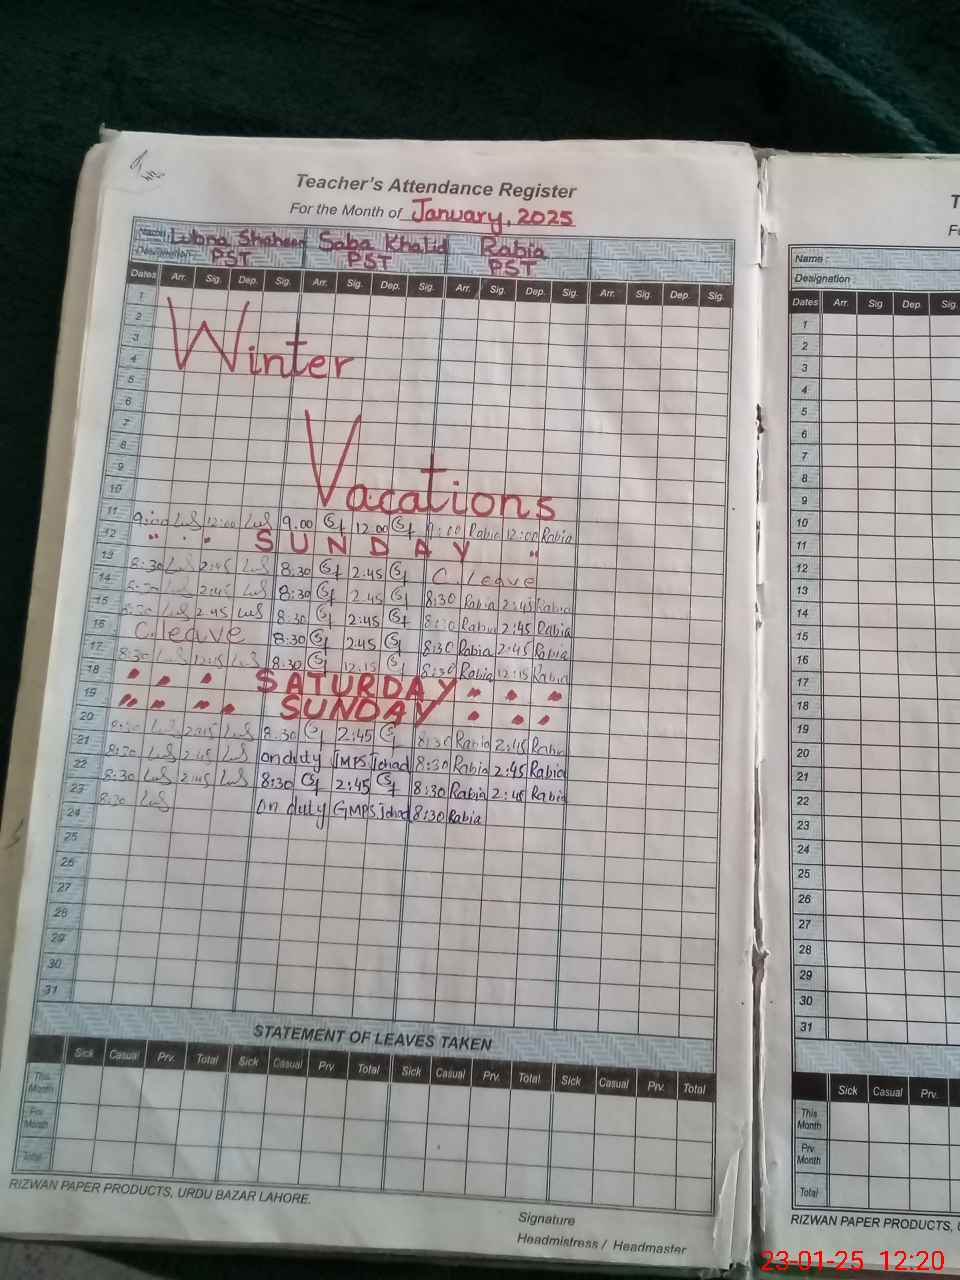 Teacher's Attendance Register
For the Month of January, 2025
Name: Lubna Shaheen Saba Khalid Rabia
Designation: PST PST PST
Dates Arr. Sig. Dep. Sig. Arr. Sig. Dep. Sig. Arr. Sig. Dep. Sig. Arr. Sig. Dep. Sig.
1
2
3
4 Winter
5
6
7
8
9
10 Vacations
11 9:00 12:00 9.00 12.00 9:00 Rabia 12:00 Rabia
12 " " SUNDAY "
13 8:30 2:45 8:30 2:45 C. Leave
14 8:30 2:45 8:30 2.45 8:30 Rabia 2:45 Rabia
15 8:30 2.45 8:30 2:45 8:30 Rabia 2:45 Rabia
16 C.leave 8:30 2:45 8:30 Rabia 2:45 Rabia
17 8:30 12:15 8:30 12:15 8:30 Rabia 12:15 Rabia
18 " " " SATURDAY " " "
19 " " " " SUNDAY " " "
20 8:30 2:45 8.30 2:45 8:30 Rabia 2:45 Rabia
21 8:30 2:45 on duty Jehad 8:30 Rabia 2:45 Rabia
22 8:30 2:45 8:30 2:45 8:30 Rabia 2:45 Rabia
23 8:30 on duty GMPS Jehad 8:30 Rabia
24
25
26
27
28
29
30
31
STATEMENT OF LEAVES TAKEN
Sick Casual Prv. Total Sick Casual Prv. Total Sick Casual Prv. Total Sick Casual Prv. Total
This Month
Prv. Month
Total
RIZWAN PAPER PRODUCTS, URDU BAZAR LAHORE.
Signature
Headmistress / Headmaster
T
F
Name :
Designation :
Dates Arr. Sig Dep. Sig.
1
2
3
4
5
6
7
8
9
10
11
12
13
14
15
16
17
18
19
20
21
22
23
24
25
26
27
28
29
30
31
Sick Casual Prv.
This Month
Prv. Month
Total
RIZWAN PAPER PRODUCTS,
23-01-25 12:20